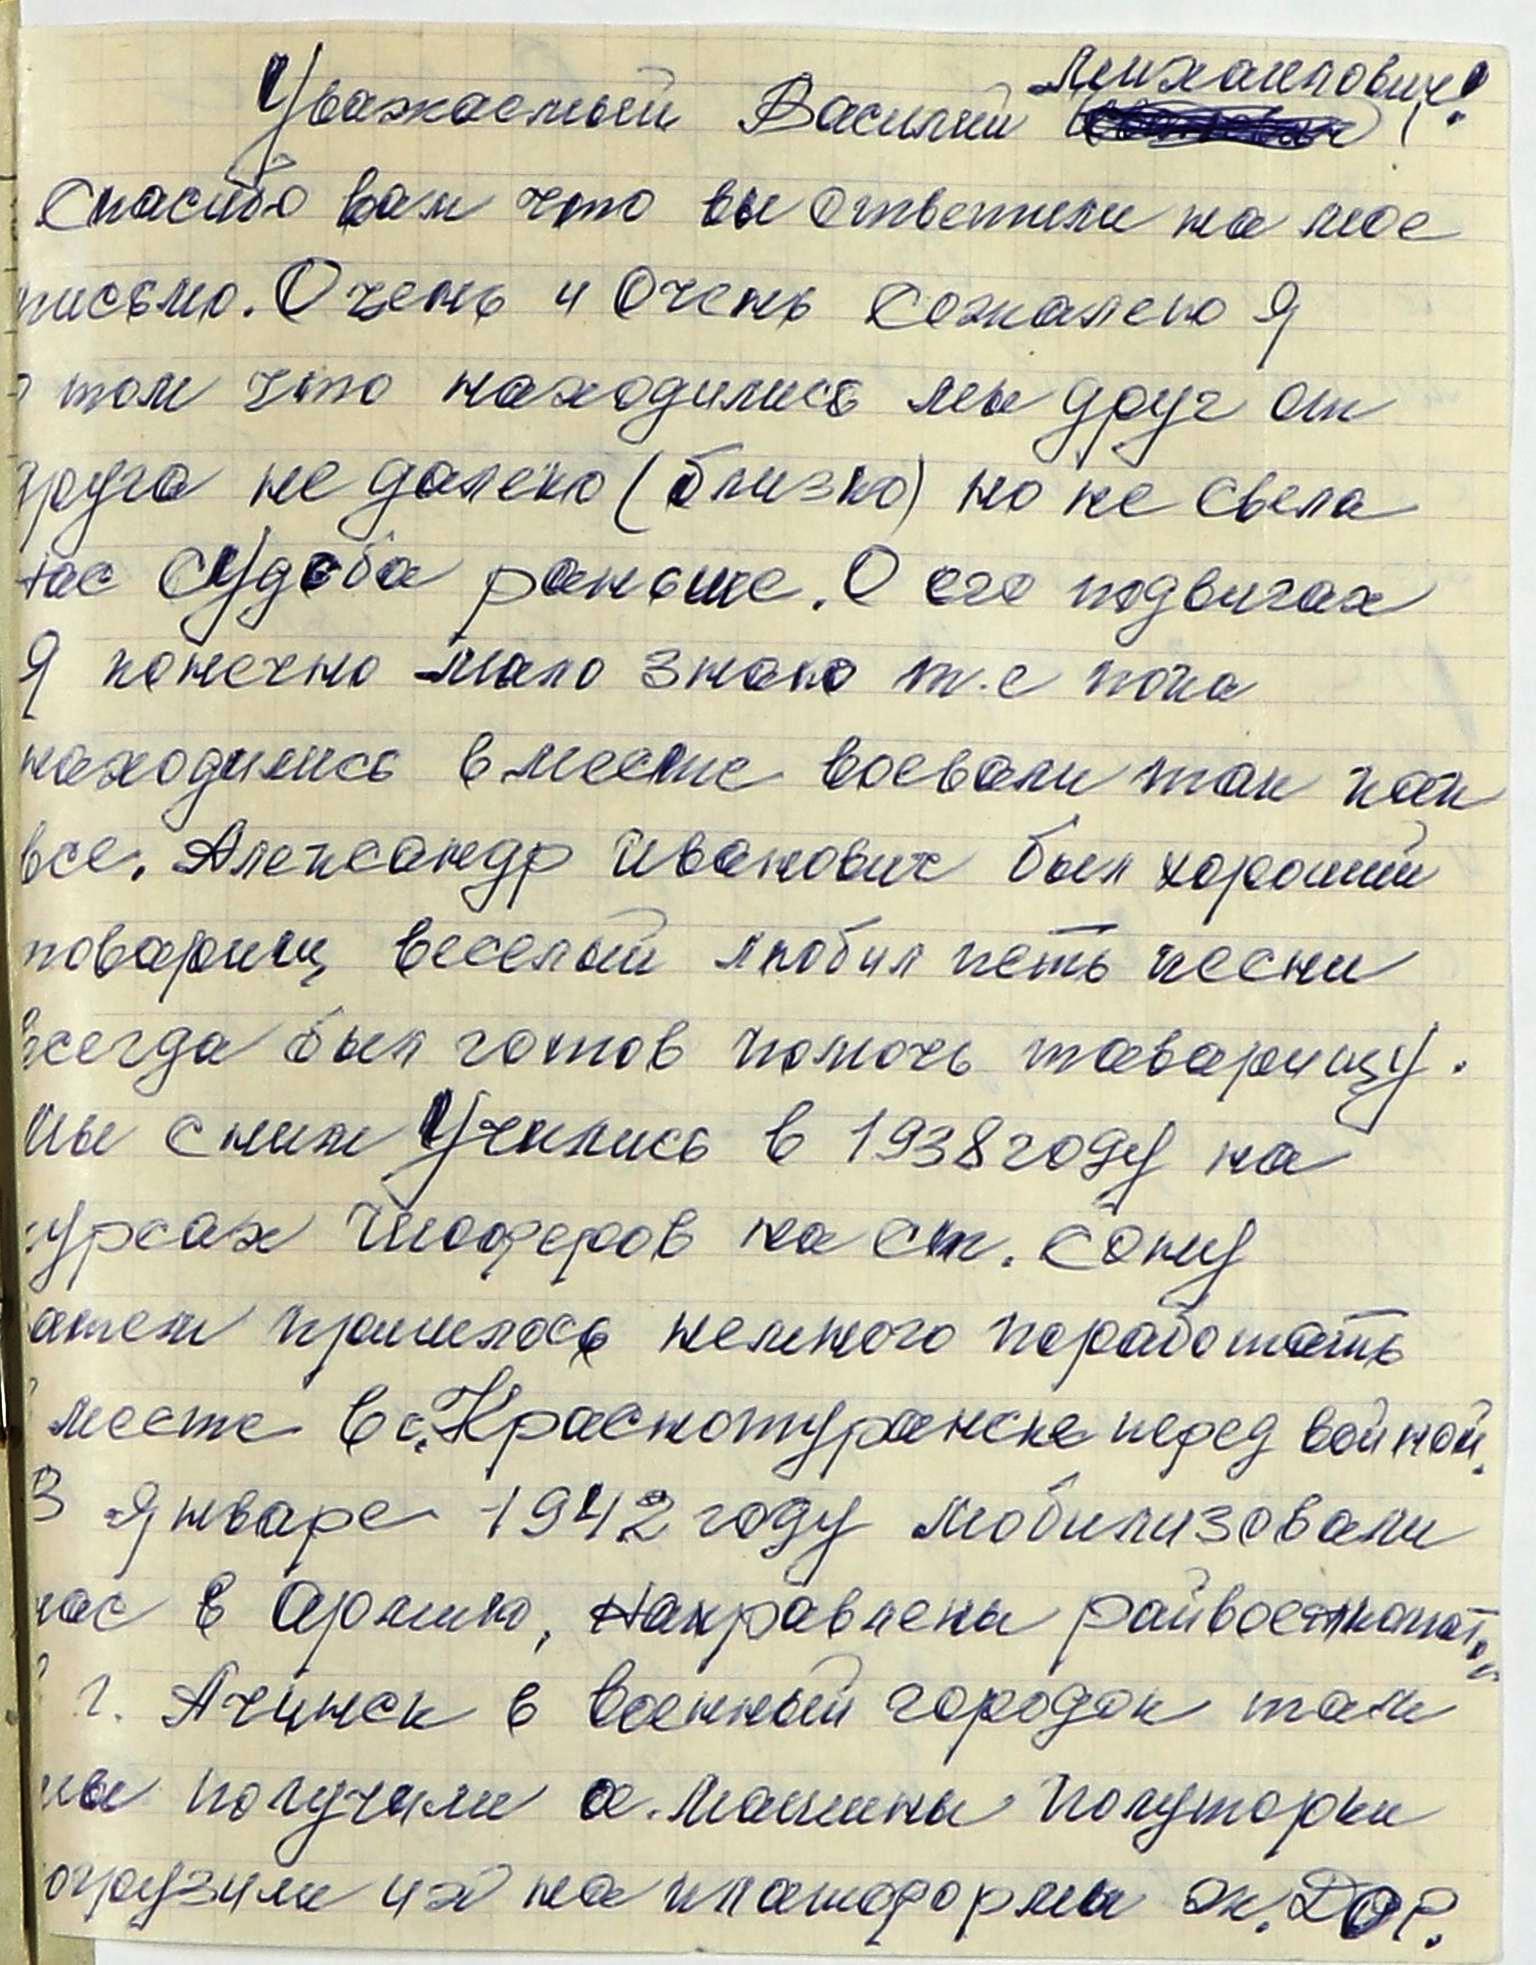 Уважаемый Василий Михаилович!
Спасибо вам что вы ответили на мое
письмо. Очень и Очень сожалею я
о том что находились мы друг от
друга не далеко (близко) но не свела
нас судьба раньше. О его подвигах
Я конечно мало знаю т.е пока
находились вместе воевали так как
все. Александр Иванович был хороший
товарищ веселый любил петь песни
всегда был готов помочь таварищу.
Мы с ним Учились в 1938 году на
курсах шоферов на ст. Сону
затем пришлось немного поработать
вместе в с. Краснотуранске перед войной.
В Январе 1942 году мобилизовали
нас в армию, направлены
в г. Ачинск в военный городок там
мы получили а. машины полуторки
погрузили их на платформы ж. Дор.